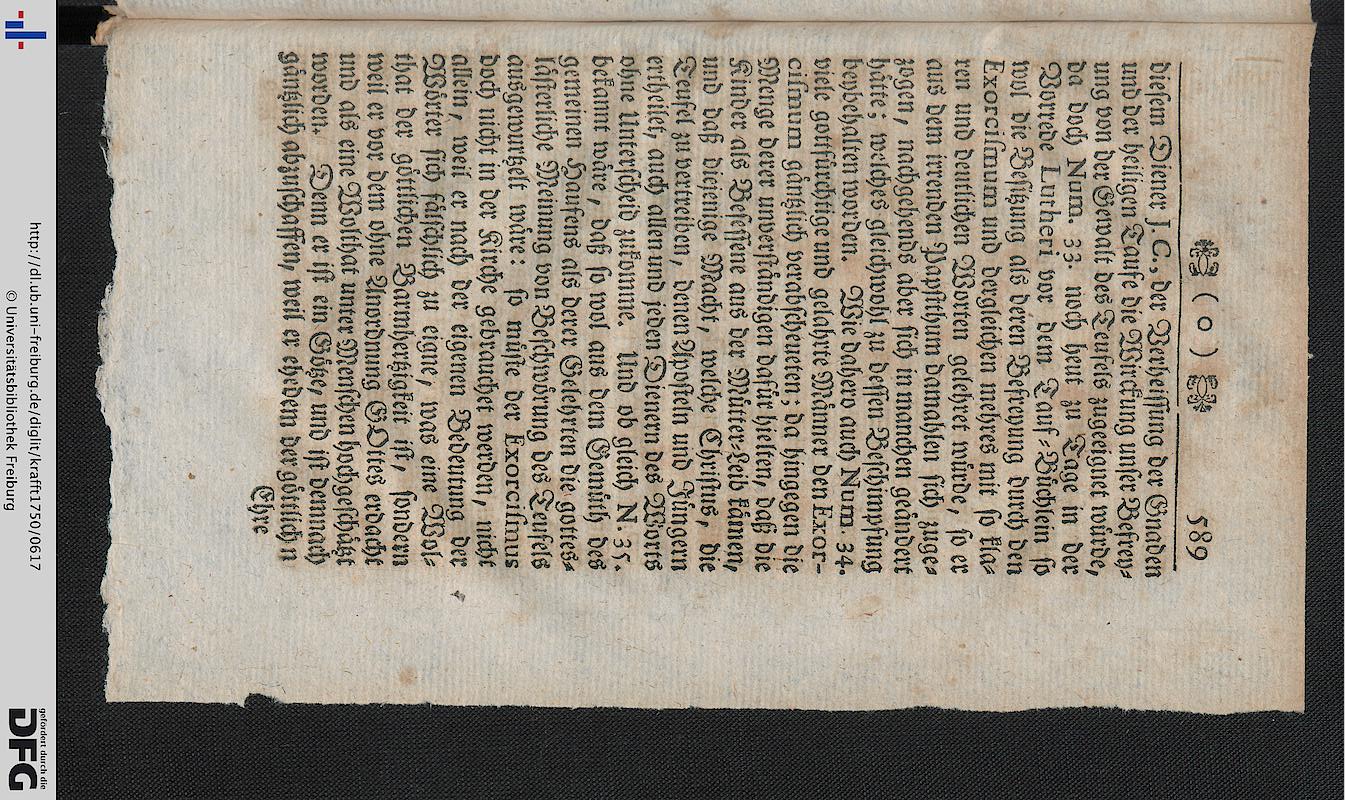 ( o ) 589
dieſem Diener J. C., der Verheiſſung der Gnaden
und der heiligen Taufe die Wirckung unſer Befrey⸗
ung von der Gewalt des Teufels zugeeignet würde,
da doch Num. 33. noch heut zu Tage in der
Vorrede Lutheri vor dem Tauf⸗Büchlein ſo
wol die Beſitzung als deren Befreyung durch den
Exorciſmum und dergleichen mehres mit ſo kla⸗
ren und deutlichen Worten gelehret würde, ſo er
aus dem irrenden Papſtthum damahlen ſich zuge⸗
zogen, nachgehends aber ſich in manchen geändert
hätte; welches gleichwohl zu deſſen Beſchimpfung
beybehalten worden. Wie dahero auch Num. 34.
viele gotsfürchtige und gelahrte Männer den Exor-
ciſmum gäntzlich verabſcheueten; da hingegen die
Menge derer unverſtändigen dafür hielten, daß die
Kinder als Beſeſſene aus der Mutter⸗Leib kämen,
und daß diejenige Macht, welche Chriſtus, die
Teufel zu vertreiben, denen Apoſteln und Jüngern
ertheilet, auch allen und jeden Dienern des Worts
ohne Unterſcheid zukomme. Und ob gleich N. 35.
bekannt wäre, daß ſo wol aus dem Gemüth des
gemeinen Haufens als derer Gelehrten die gottes⸗
läſterliche Meinung von Beſchwörung des Teufels
ausgewurtzelt wäre: ſo müſte der Exorciſmus
doch nicht in der Kirche gebrauchet werden, nicht
allein, weil er nach der eigenen Bedeutung der
Wörter ſich fälſchlich zu eigne, was eine Wol⸗
that der göttlichen Barmhertzigkeit iſt, ſondern
weil er vor dem ohne Anordnung GOttes erdacht
und als eine Wolthat unter Menſchen hochgeſchätzt
worden. Denn er iſt ein Götze, und iſt demnach
gäntzlich abzuſchaffen, weil er eheden der göttlich n
Ehre
http://dl.ub.uni-freiburg.de/diglit/krafft1750/0617
© Universitätsbibliothek Freiburg
gefördert durch die
DFG